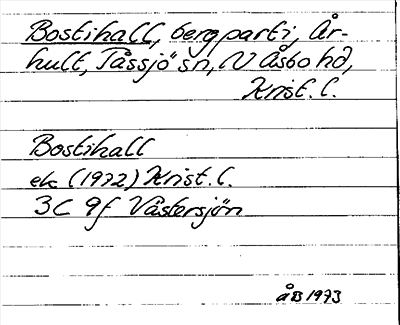 Bostihall, bergparti, År-
hult, Tåssjö sn, N Åsbo hd,
Krist. l.
Bostihall
ek (1972) Krist. l.
3C 9f Västersjön
åB 1973